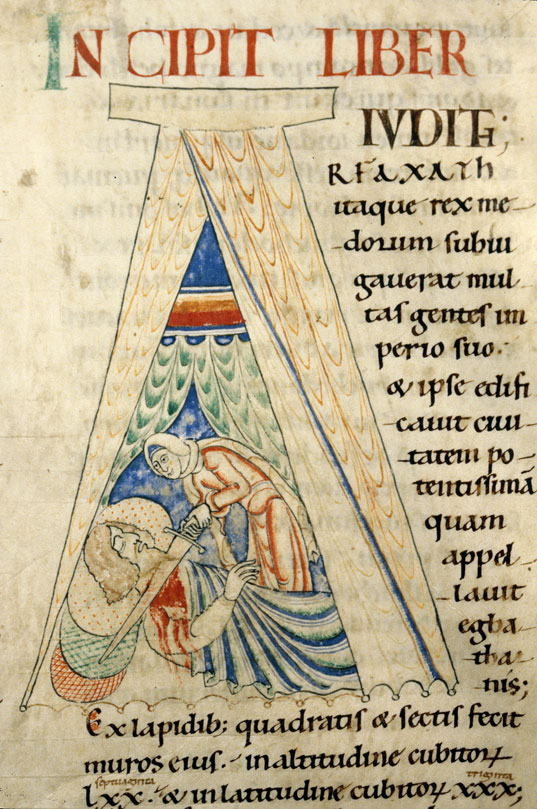 IN CIPIT LIBER
IVDITH;
RFAXATH
itaque rex me
dorum subiu
gauerat mul
tas gentes im
perio suo.
& ipse edifi
cauit ciui
tatem po
tentissimā
quam
appel
lauit
egba
tha
nis;
Ex lapidib; quadratis & sectis fecit
muros eius. in altitudine cubitoꝝ
septuaginta
triginta
lxx. & in latitudine cubitoꝝ xxx;